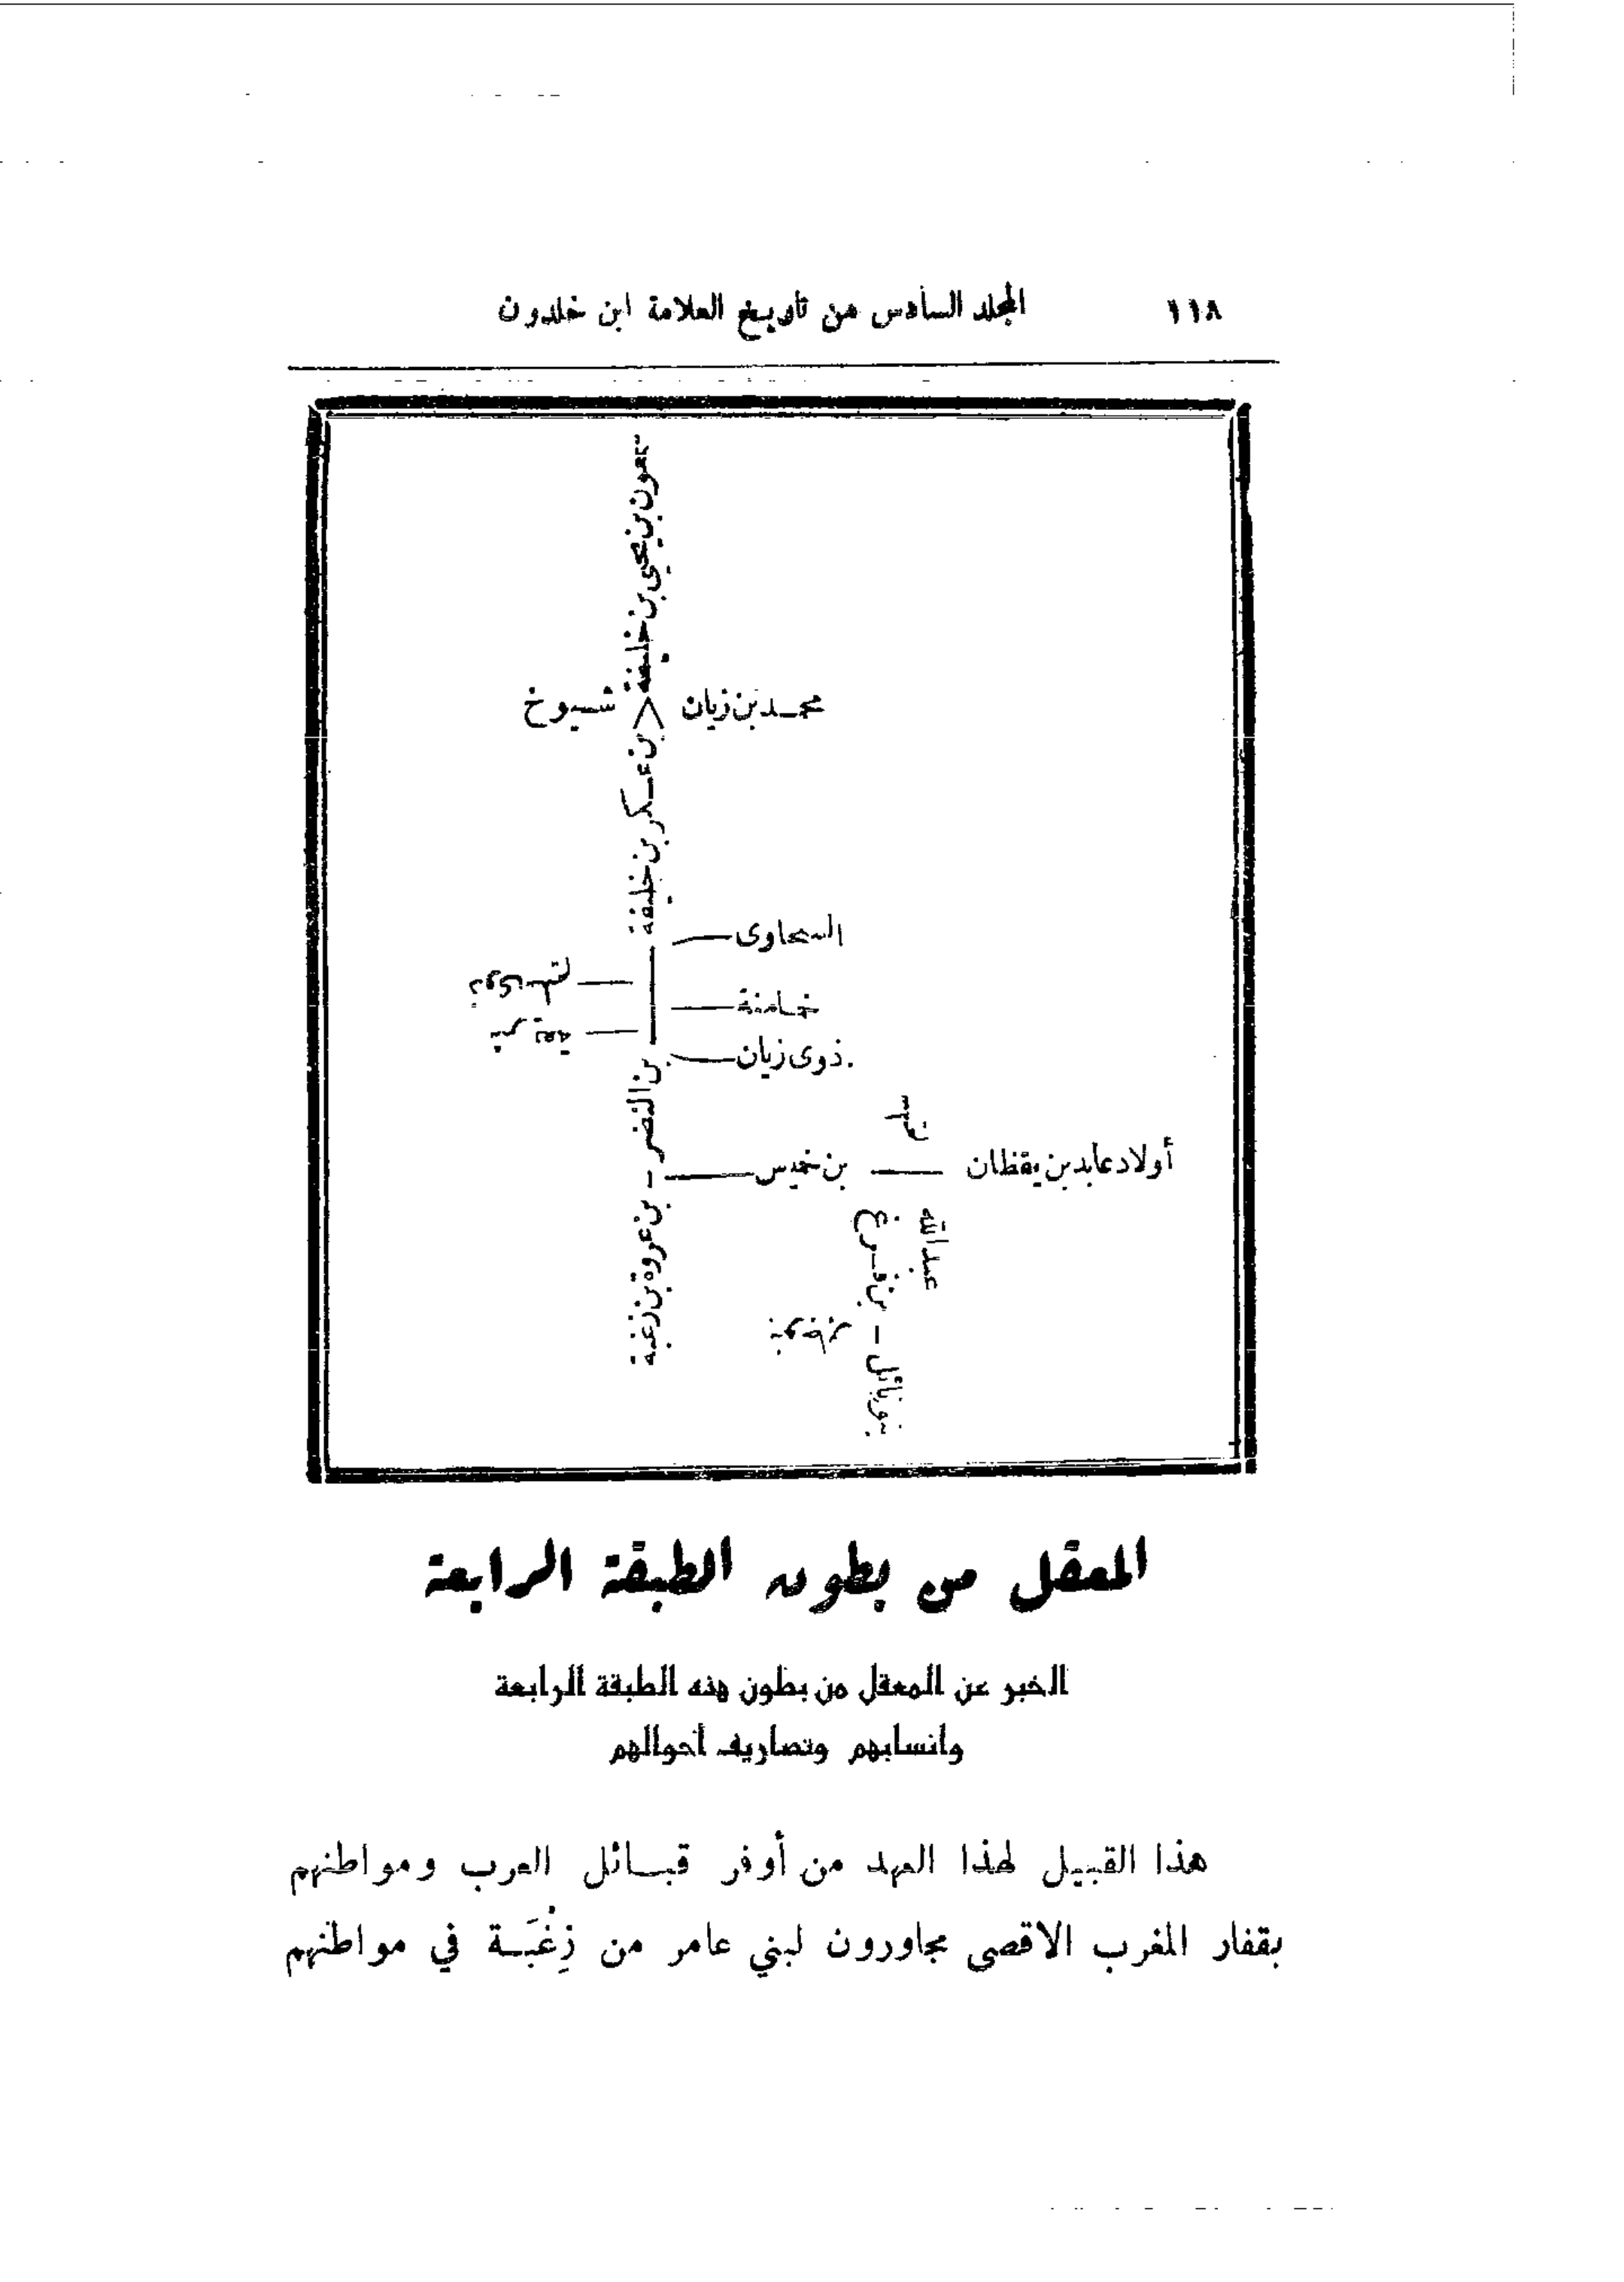 ١١٨ المجلد السادس من تاريخ العلامة ابن خلدون
بن يحيى بن خليفة
محمد بن زيان
شيوخ
بن عسكر بن خليفة
السحاوى
خامنة
ذوى زيان
بن النضر — بن عروة بن زغبة
أولاد عابد بن يقظان — بن خميس
عبد الله
المعقل من بطون الطبقة الرابعة
الخبر عن المعقل من بطون هذه الطبقة الرابعة
وأنسابهم وتصاريف أحوالهم
هذا القبيل لهذا العهد من أوفر قبائل العرب ومواطنهم
بقفار المغرب الاقصى مجاورون لبني عامر من زِغْبَة في مواطنهم